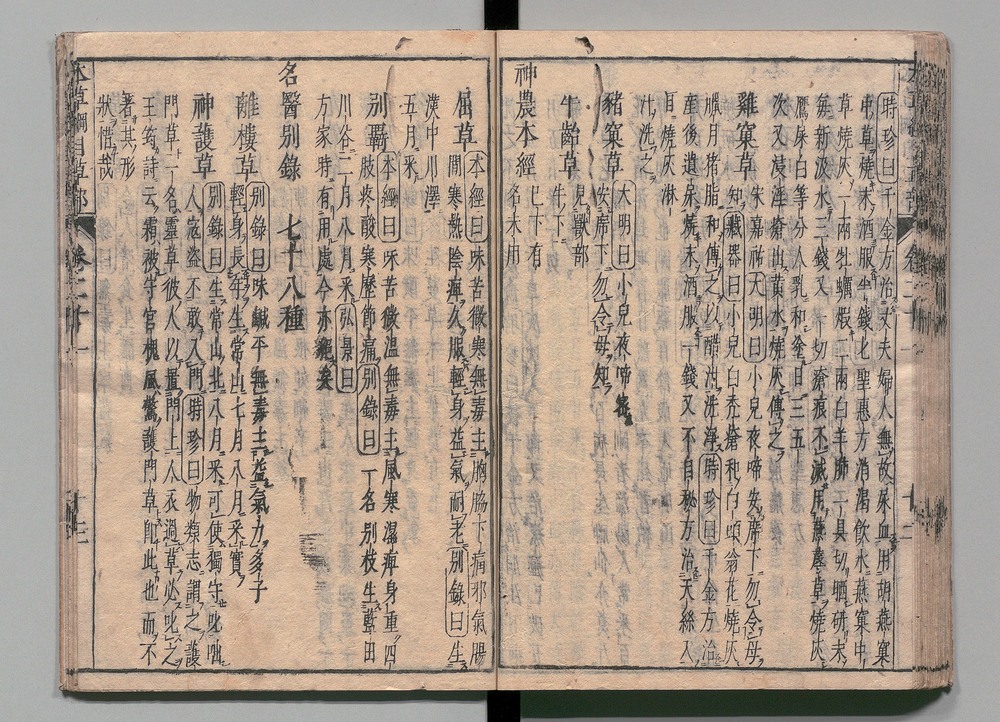 時珍曰千金方治丈夫婦人無故尿血用胡燕窠
中草燒末酒服半錢匕聖惠方消渴飲水燕窠中
草燒灰一兩牡蠣煆一兩白羊肺一具切晒研末
每新汲水三錢又一切瘡痕不滅用燕蓐草燒灰
鷹屎白等分人乳和塗日三五
次又浸淫瘡出黃水燒灰傅之
雞窠草
宋嘉祐大明曰小兒夜啼安席下勿令母
知藏器曰小兒白禿瘡和白頭翁花燒灰
臘月猪脂和傅之以醋泔洗淨時珍曰千金方治
產後遺尿燒末酒服一錢又不自秘方治天絲入
目燒灰淋
汁洗之
豬窠草
大明曰小兒夜啼密
安席下勿令母知
牛齝草
見獸部
牛下
神農本經
已下有
名未用
屈草
本經曰味苦微寒無毒主胸脇下痛邪氣腸
間寒熱陰痺久服輕身益氣耐老別錄曰生
漢中川澤
五月采
別羇
本經曰味苦微溫無毒主風寒濕痺身重四
肢疼酸寒歷節痛別錄曰一名別枝生藍田
川谷二月八月采弘景曰
方家時有用處今亦絕矣
名醫別錄 七十八種
離樓草
別錄曰味鹹平無毒主益氣力多子
輕身長年生常山七月八月采實
神護草
別錄曰生常山北八月采可使獨守叱咄
人寇盜不敢入門時珍曰物類志謂之護
門草一名靈草彼人以置門上人衣過草必叱之
王筠詩云霜被守宮槐風驚護門草即此也而不
著其形
狀惜哉
本草綱目草部 卷二十一 十三